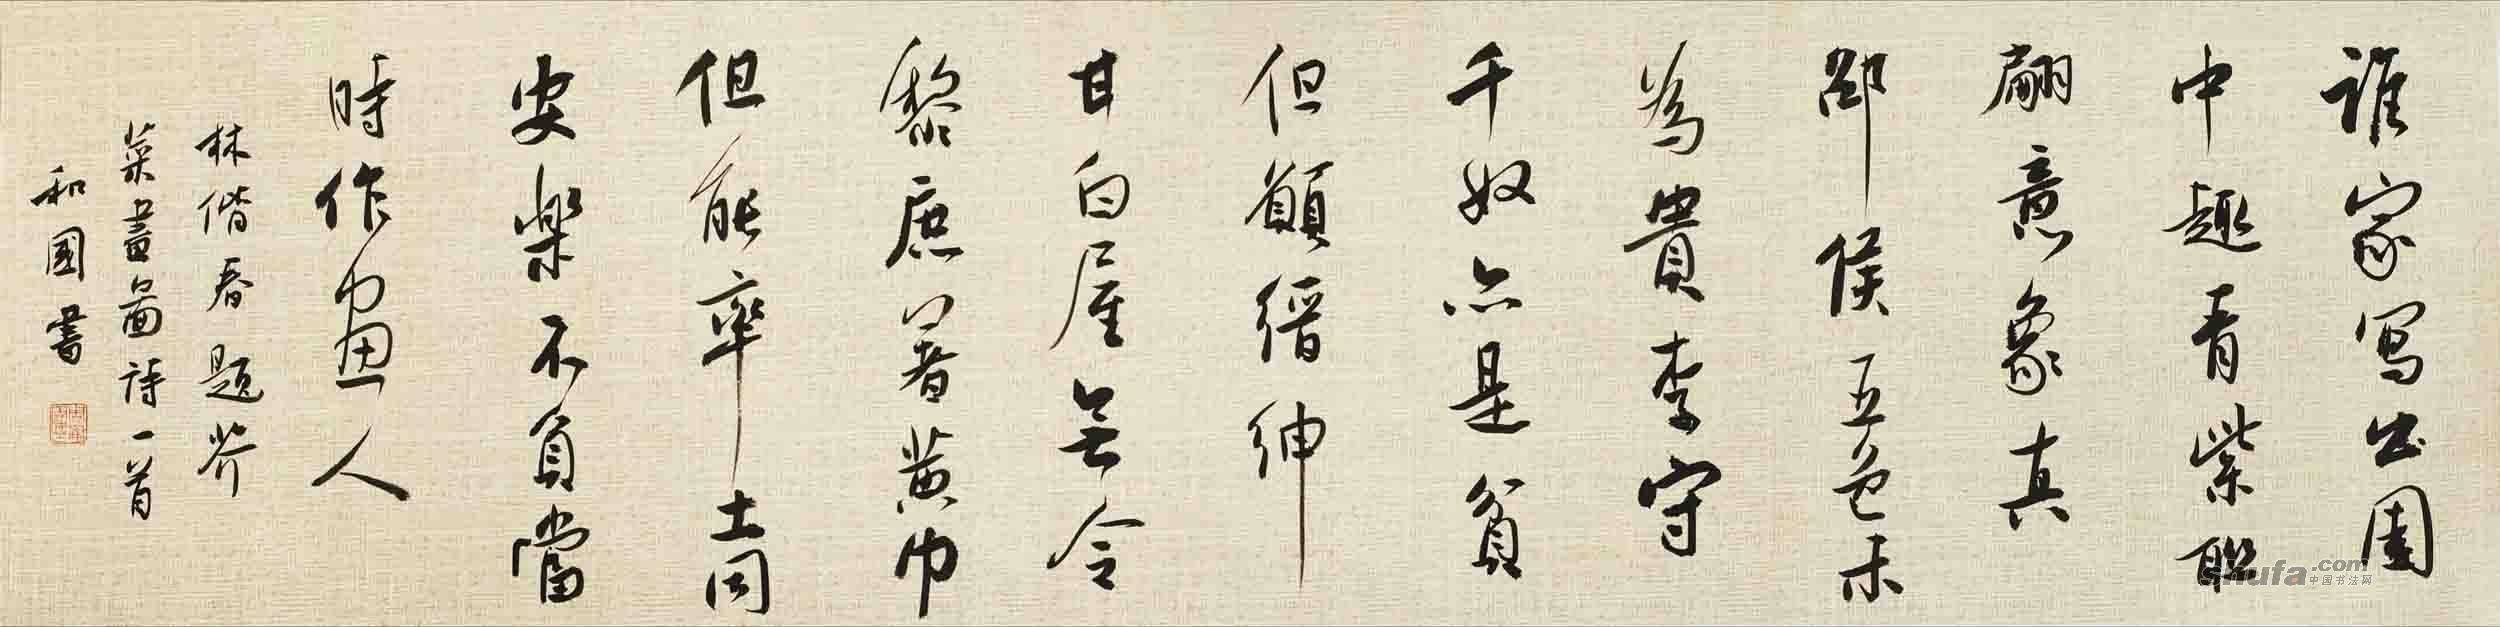 誰家寫出園
中趣青紫聯
翩意象真
邵侯五色未
為貴李守
千奴亦是貧
但願縉紳
甘白屋無令
黎庶著黃巾
但能率土同
安樂不負當
時作畫人
林偕春題芥
菜畫圖詩一首
和國書
shufa.com
中国书法网